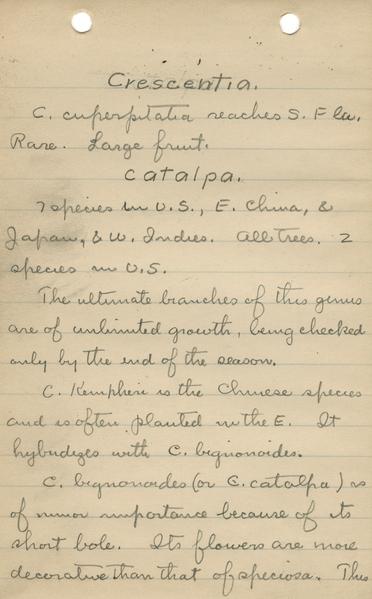 Crescentia.
C. cuperpitatia reaches S. Fla.
Rare. Large fruit.
Catalpa.
7 species in U.S., E. China, &
Japan, & W. Indies. All trees. 2
species in U.S.
The ultimate branches of this genus
are of unlimited growth, being checked
only by the end of the season.
C. Kempheri is the Chinese species
and is often planted in the E. It
hybudizes with C. bignonoides.
C. bignonoides (or C. catalpa) is
of minor importance because of its
short bole. Its flowers are more
decorative than that of speciosa. This